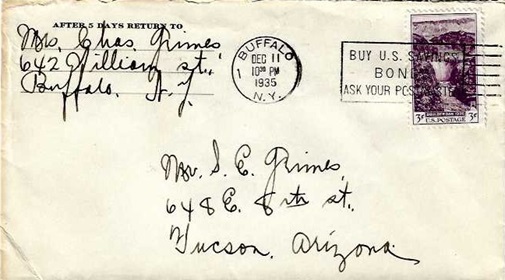 AFTER 5 DAYS RETURN TO
Mrs. Chas. Grimes
642 William st.,
Buffalo, N.Y.
BUFFALO
DEC 11
10 30 PM
1935
N.Y.
1
BUY U.S. SAVINGS
BONDS
ASK YOUR POSTMASTER
3¢ 3¢
U.S. POSTAGE
Mr. S. E. Grimes,
648 E. 8th st.,
Tucson, Arizona.